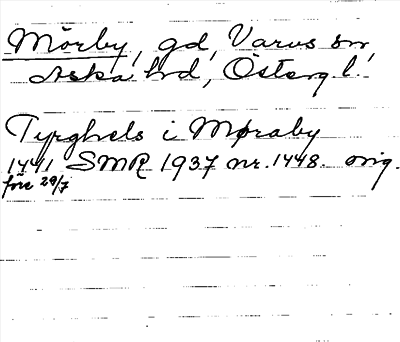 Mörby, gd, Varvs sn,
Aska hd, Österg. l.
Tyrghels i Møraby
1441 SMR 1937 nr. 1448. orig.
före 29/7